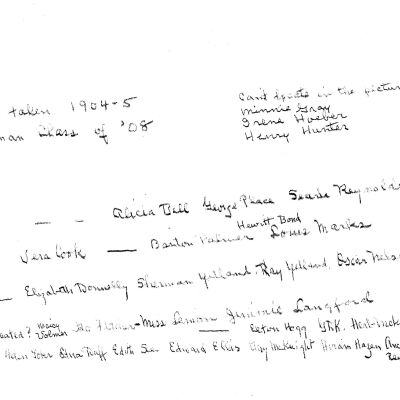 taken 1904-5
man Class of '08
Can't locate in the pictur
Minnie Gray
Irene Hoeber
Henry Hunter
— — Alicia Bell George Peace Searle Reynolds
Hewitt Bond
Vera Cook — Barton Palmer Louis Marks
— Elizabeth Donnelly Sherman Yelland Ray Yelland, Oscar Nels
eated? Miss Lemon Jimmie Langford
— Eaton Hogg
Helen Edna Edith Edward Ellis McKnight Hiram Hagen